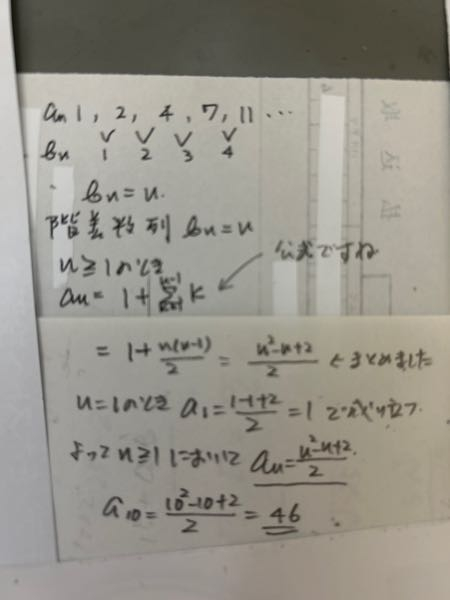 an 1, 2, 4, 7, 11 ...
bn 1 2 3 4
bn = n.
階差数列 bn = n
n≧1のとき 公式ですね
an = 1 + Σ[k=1, n-1] k
= 1 + n(n-1)/2 = (n²-n+2)/2 ←まとめました
n=1のとき a1 = (1-1+2)/2 = 1 で成り立つ.
よって n≧1 において an = (n²-n+2)/2.
a10 = (10²-10+2)/2 = 46